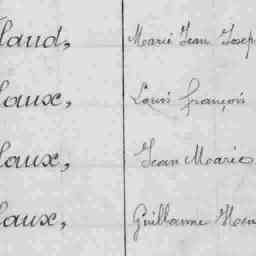 laud, Marie Jean Josep
laux, Louis françois
laux, Jean Marie
laux, Guillaume Hen